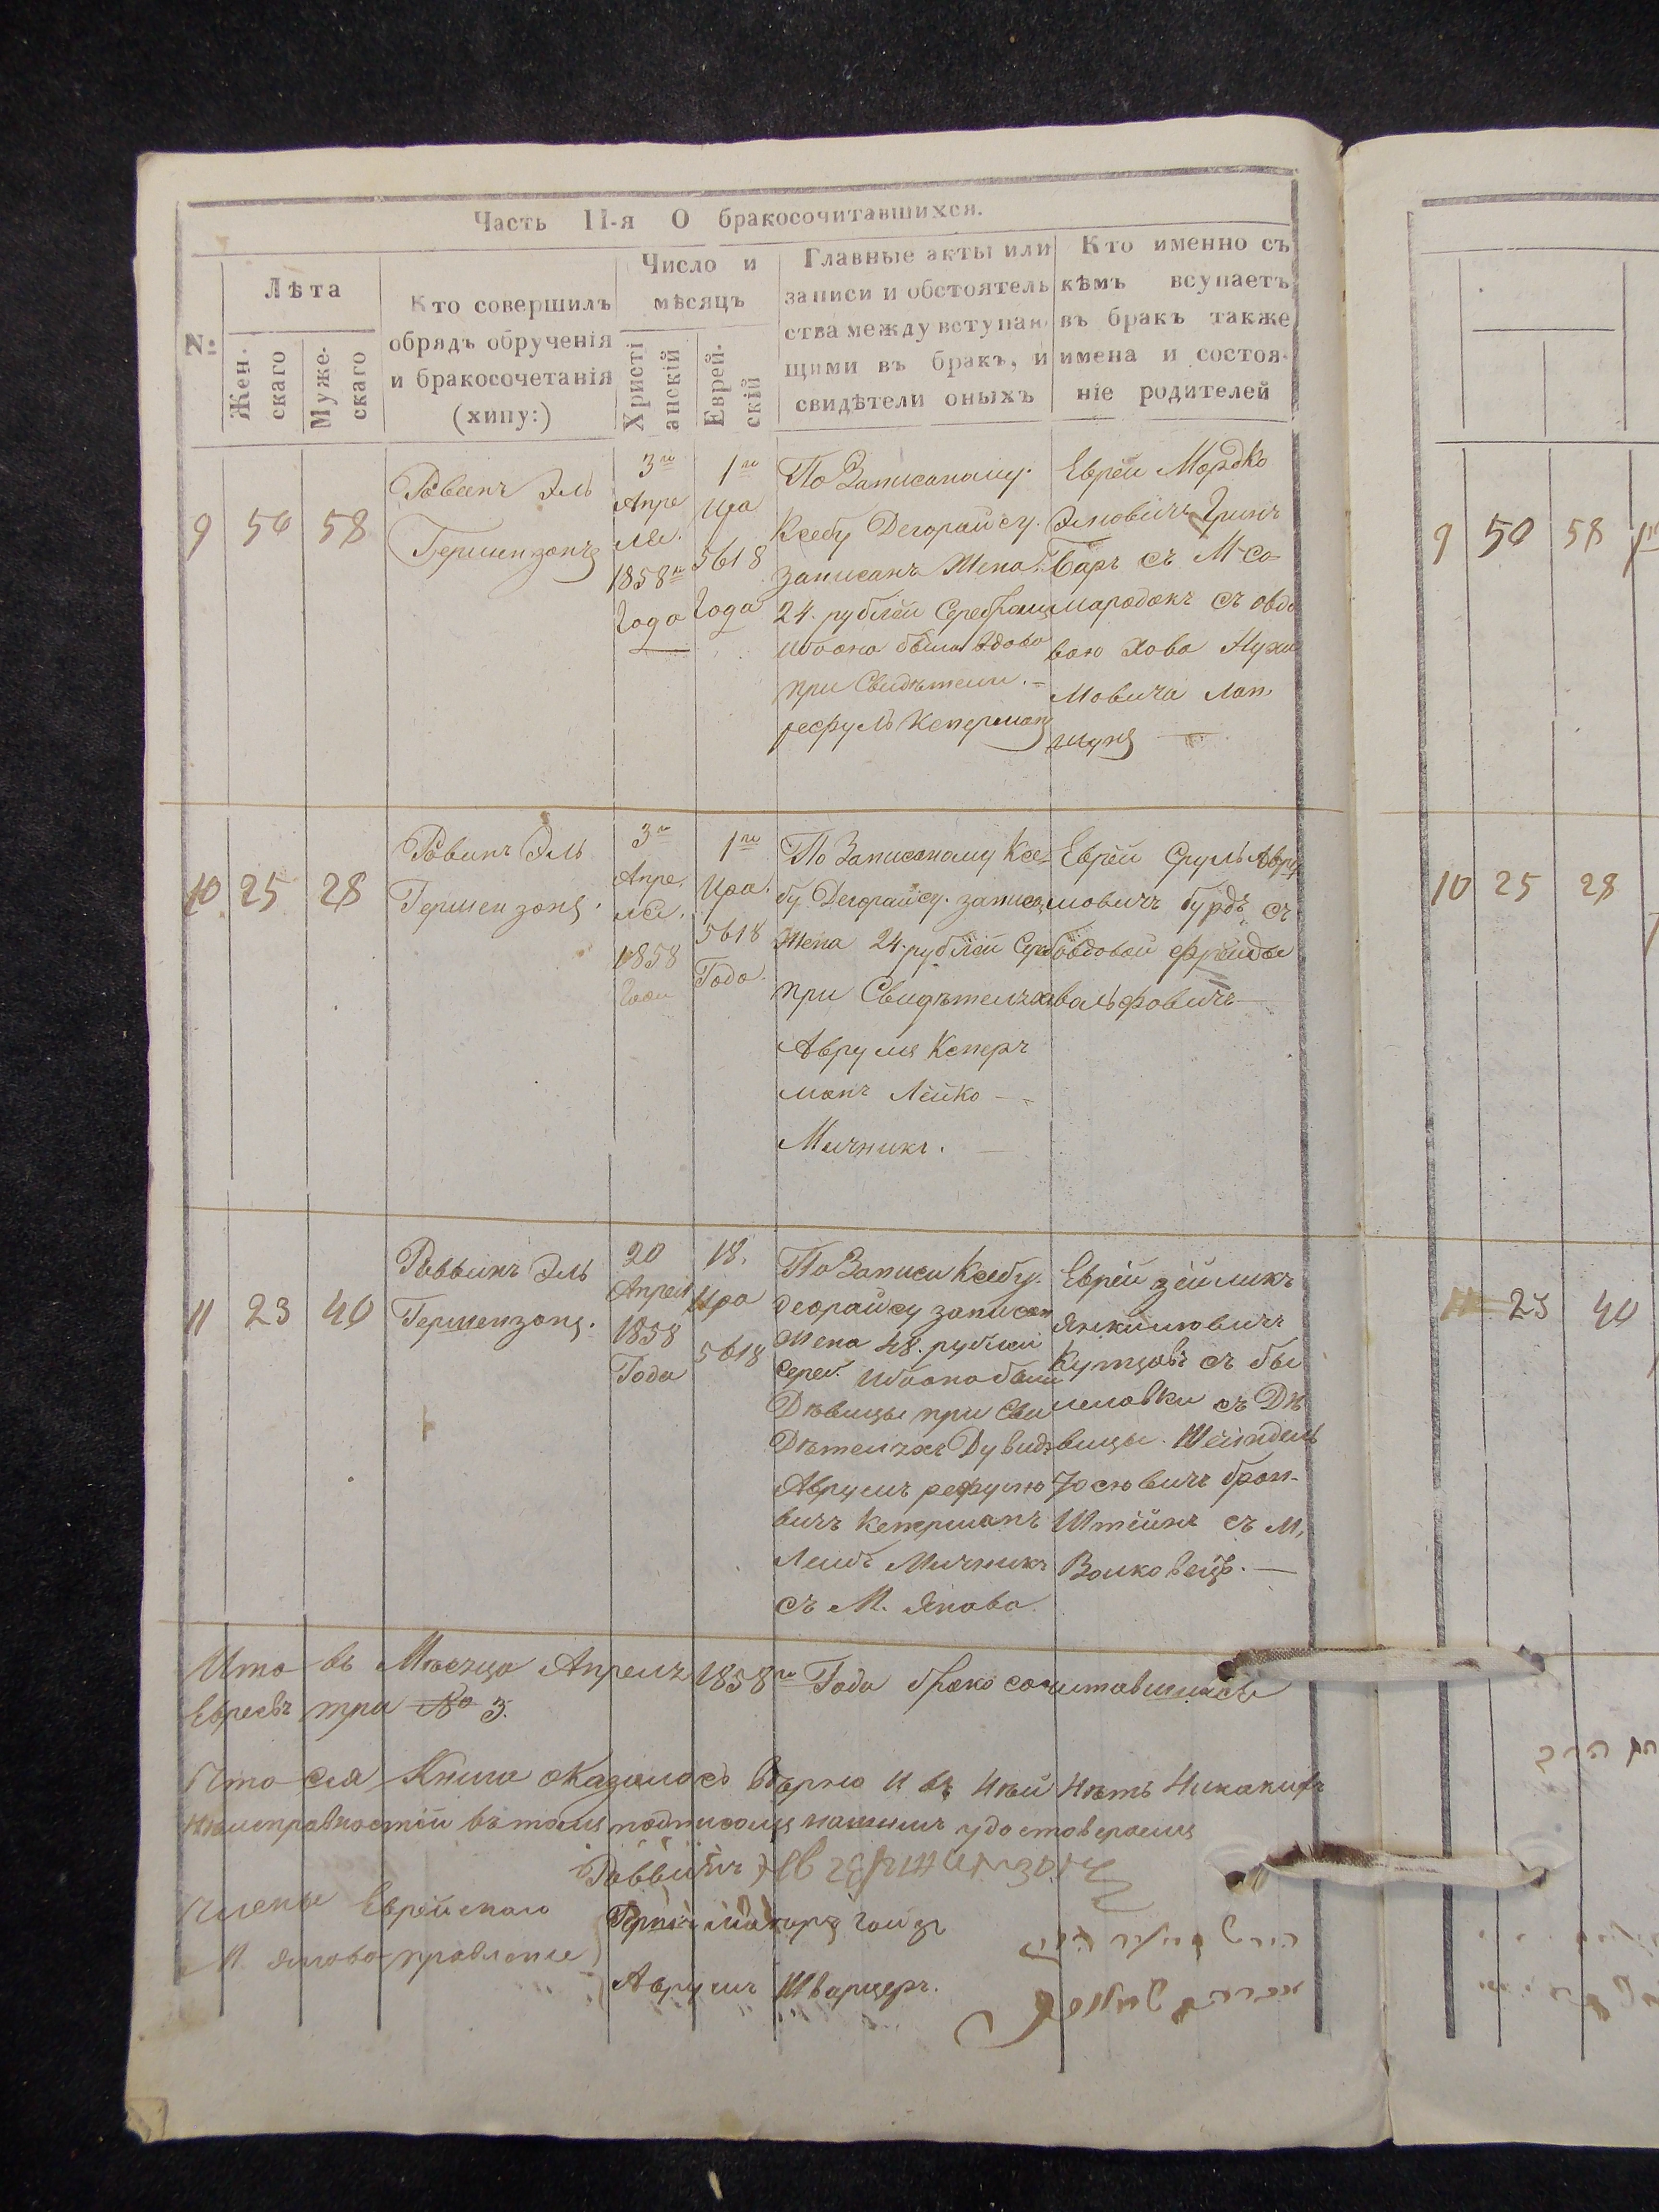 Часть II-я О бракосочитавшихся.
№
Лѣта
Жен.
скаго
Муже-
скаго
Кто совершилъ
обрядъ обрученія
и бракосочетанія
(хипу:)
Число и
мѣсяцъ
Христі
анскій
Еврей.
скій
Главные акты или
записи и обстоятель
ства между вступаю
щими въ бракъ, и
свидѣтели оныхъ
Кто именно съ
кѣмъ вступаетъ
въ бракъ также
имена и состоя-
ніе родителей
9
50
58
Равинъ Эль
Гершензонъ
3го
Апре
ля.
1858го
Года
1го
Ира
5618
Года
По Записаному
Ксебу Деорайсу.
записанъ Жена.
24. рублей Серебром
ибо она была вдова
при Свидѣтели.
Кеперман
Еврей Мордко
Элювичъ Грин
Барх съ М. Со-
мародокъ съ овдо
вою Хова Нухи
мовича Лап
шунъ
10
25
28
Равинъ Эль
Гершензонъ.
3го
Апре.
ля.
1858
Года
1го
Ира.
5618
Года.
По Записаному Ксе-
бу. Деорайсу. записан
Жена 24. рублей Сереб
при Свидѣтелях
Аврумъ Кепер
манъ Лейко
Мичникъ.
Еврей Сруль Авру
мовичъ бурдъ съ
овдовой Фрейда
вальфовичъ
11
23
40
Раввинъ Эль
Гершензонъ.
20
Апреля
1858
Года
18.
Ира
5618
По Записи Ксебу.
деорайсу записан
Жена 48. рублей
серей. ибо она была
Дѣвицы при Сви
Дѣтеляхъ Дувидъ
Аврумъ рефулю
вичъ Кеперманъ
Лейбъ Мичникъ
съ М. Янова
Еврей зейликъ
Янкилювичъ
Купцовъ съ бы
иловки съ Дѣ
вицы. Шейндель
Юсювичъ брон-
Штейнъ съ М.
Волковецъ.
Итого въ Мѣсяцѣ Апреля 1858го Года бракосочитавшихся
Евреевъ три № 3.
Что сія Книга оказалась Вѣрно и въ ней нѣтъ никакихъ
неисправностей въ томъ подписомъ нашимъ удостоверяемъ
Раввинъ Эль Гершензонъ
Члены Еврейскаго
М. Янова правленіе
Аврумъ Шварцеръ.
9
50
58
10
25
28
11
23
40